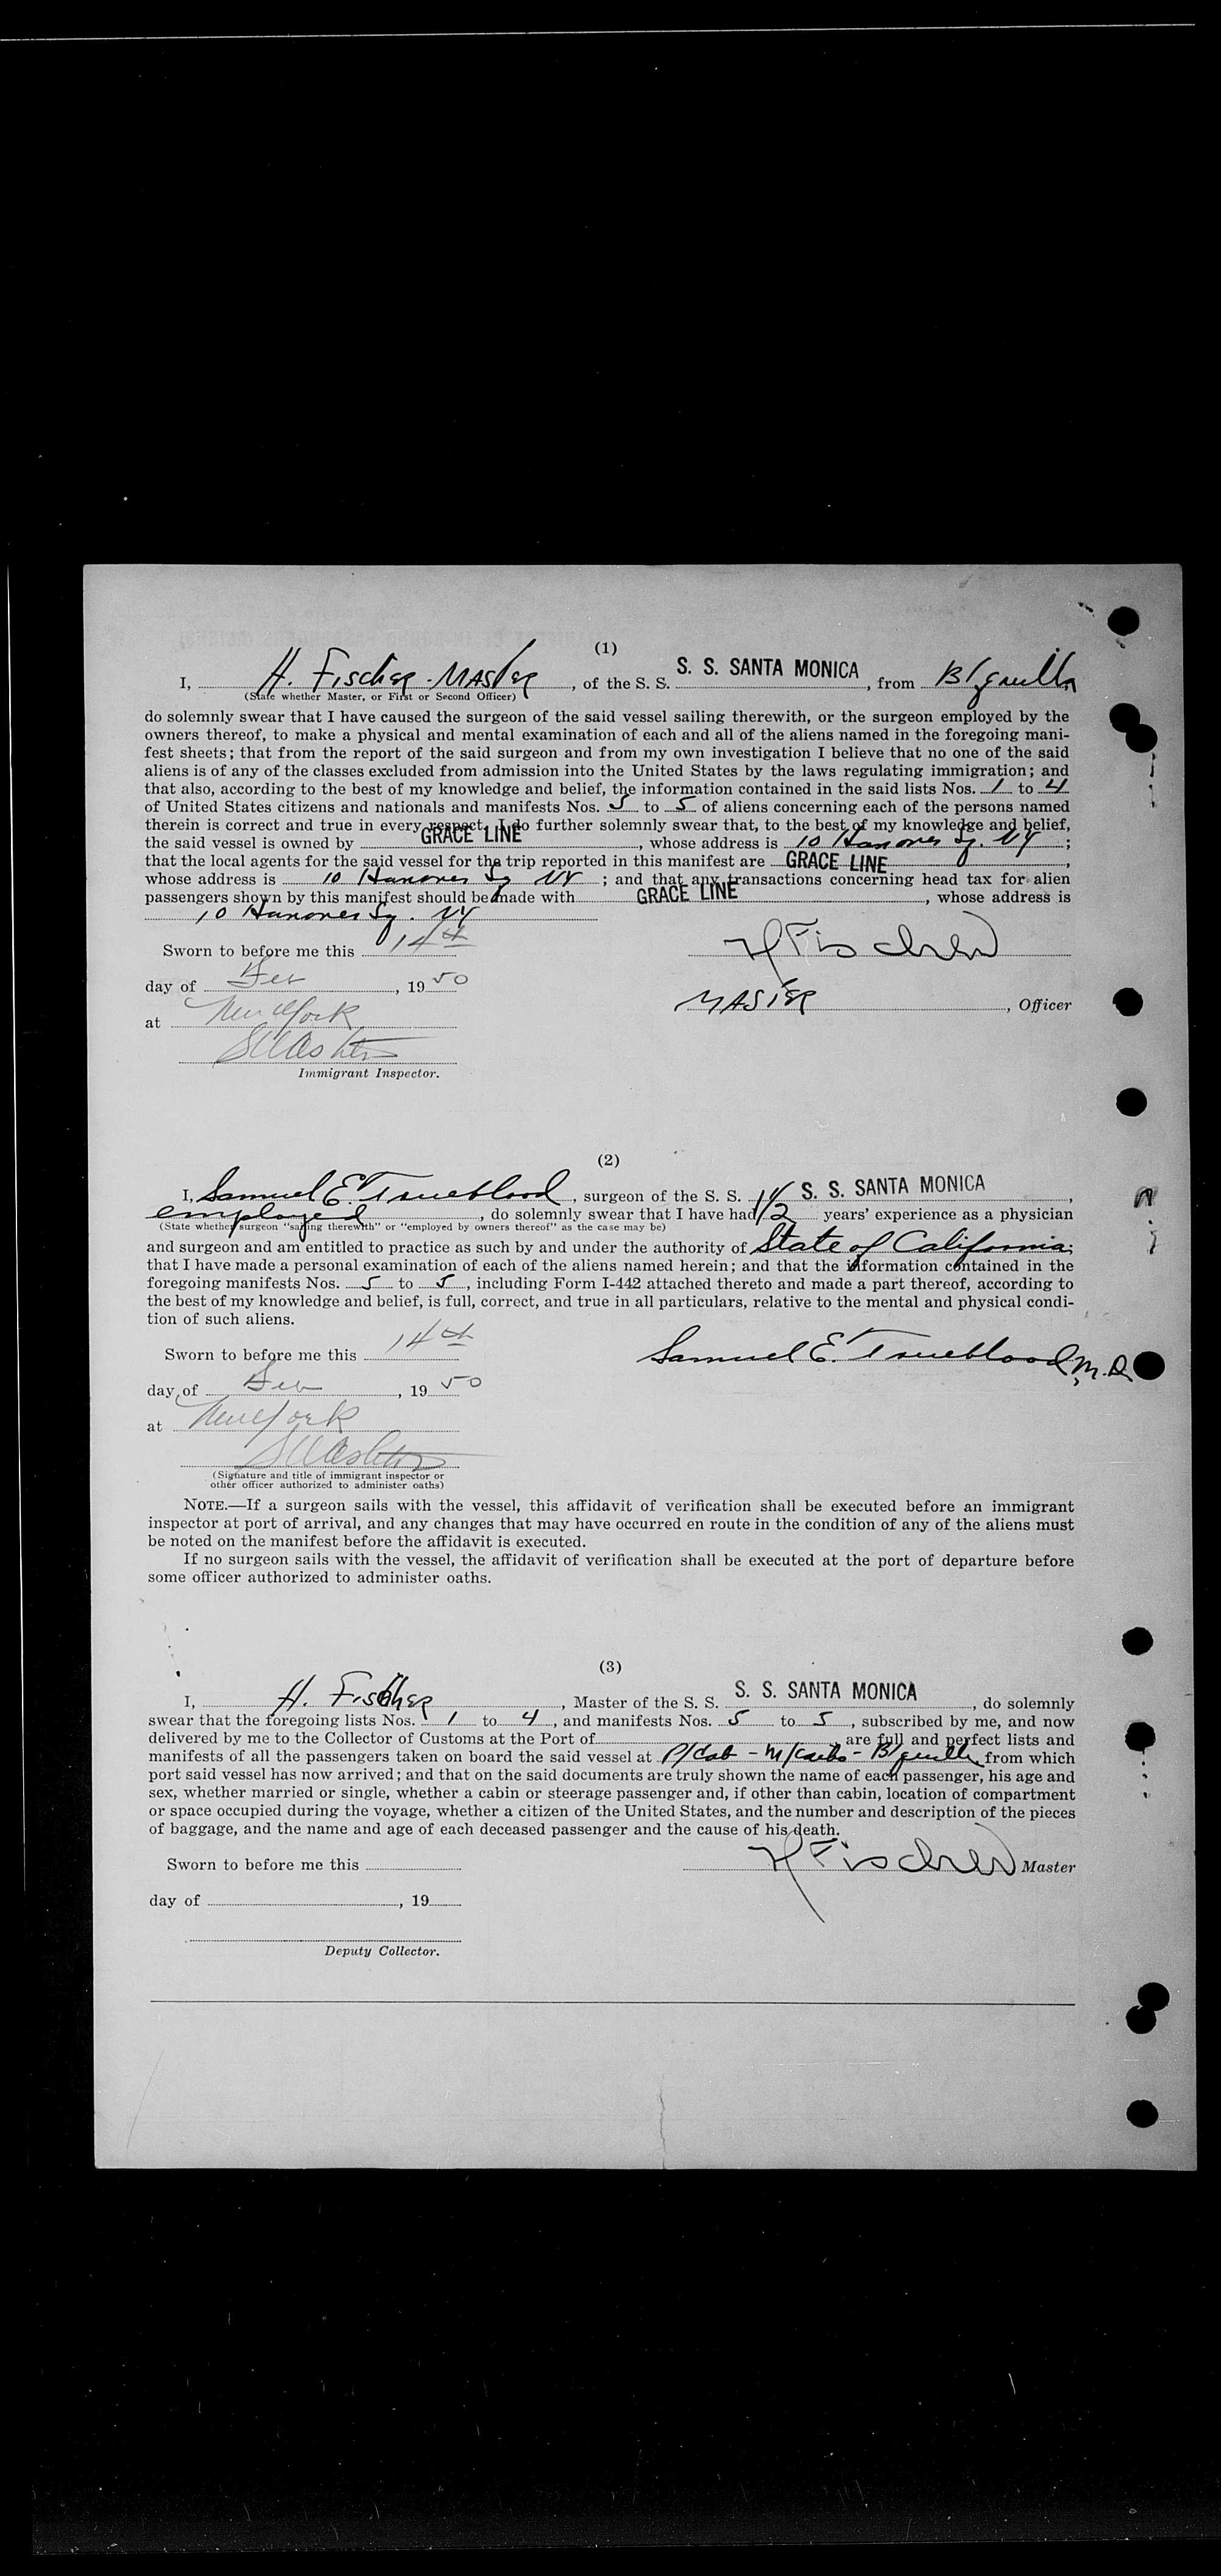 (1)
I, H. Fischer - Master, of the S. S. S. S. SANTA MONICA, from B/quilla
(State whether Master, or First or Second Officer)
do solemnly swear that I have caused the surgeon of the said vessel sailing therewith, or the surgeon employed by the
owners thereof, to make a physical and mental examination of each and all of the aliens named in the foregoing mani-
fest sheets; that from the report of the said surgeon and from my own investigation I believe that no one of the said
aliens is of any of the classes excluded from admission into the United States by the laws regulating immigration; and
that also, according to the best of my knowledge and belief, the information contained in the said lists Nos. 1 to 4
of United States citizens and nationals and manifests Nos. 5 to 5 of aliens concerning each of the persons named
therein is correct and true in every respect. I do further solemnly swear that, to the best of my knowledge and belief,
the said vessel is owned by GRACE LINE, whose address is 10 Hanover Sq. NY;
that the local agents for the said vessel for the trip reported in this manifest are GRACE LINE,
whose address is 10 Hanover Sq NY; and that any transactions concerning head tax for alien
passengers shown by this manifest should be made with GRACE LINE, whose address is
10 Hanover Sq. NY
Sworn to before me this 14th
H Fischer
day of Feb, 1950
MASTER, Officer
at New York
Immigrant Inspector.
(2)
I, Samuel E. Trueblood, surgeon of the S. S. S. S. SANTA MONICA,
employed, do solemnly swear that I have had 12 years' experience as a physician
(State whether surgeon "sailing therewith" or "employed by owners thereof" as the case may be)
and surgeon and am entitled to practice as such by and under the authority of State of California;
that I have made a personal examination of each of the aliens named herein; and that the information contained in the
foregoing manifests Nos. 5 to 5, including Form I-442 attached thereto and made a part thereof, according to
the best of my knowledge and belief, is full, correct, and true in all particulars, relative to the mental and physical condi-
tion of such aliens.
Sworn to before me this 14th
Samuel E. Trueblood, M.D.
day of Feb, 1950
at New York
(Signature and title of immigrant inspector or
other officer authorized to administer oaths)
NOTE.—If a surgeon sails with the vessel, this affidavit of verification shall be executed before an immigrant
inspector at port of arrival, and any changes that may have occurred en route in the condition of any of the aliens must
be noted on the manifest before the affidavit is executed.
If no surgeon sails with the vessel, the affidavit of verification shall be executed at the port of departure before
some officer authorized to administer oaths.
(3)
I, H. Fischer, Master of the S. S. S. S. SANTA MONICA, do solemnly
swear that the foregoing lists Nos. 1 to 4, and manifests Nos. 5 to 5, subscribed by me, and now
delivered by me to the Collector of Customs at the Port of, are full and perfect lists and
manifests of all the passengers taken on board the said vessel at P/Cab - B/quilla from which
port said vessel has now arrived; and that on the said documents are truly shown the name of each passenger, his age and
sex, whether married or single, whether a cabin or steerage passenger and, if other than cabin, location of compartment
or space occupied during the voyage, whether a citizen of the United States, and the number and description of the pieces
of baggage, and the name and age of each deceased passenger and the cause of his death.
Sworn to before me this
H Fischer Master
day of , 19
Deputy Collector.